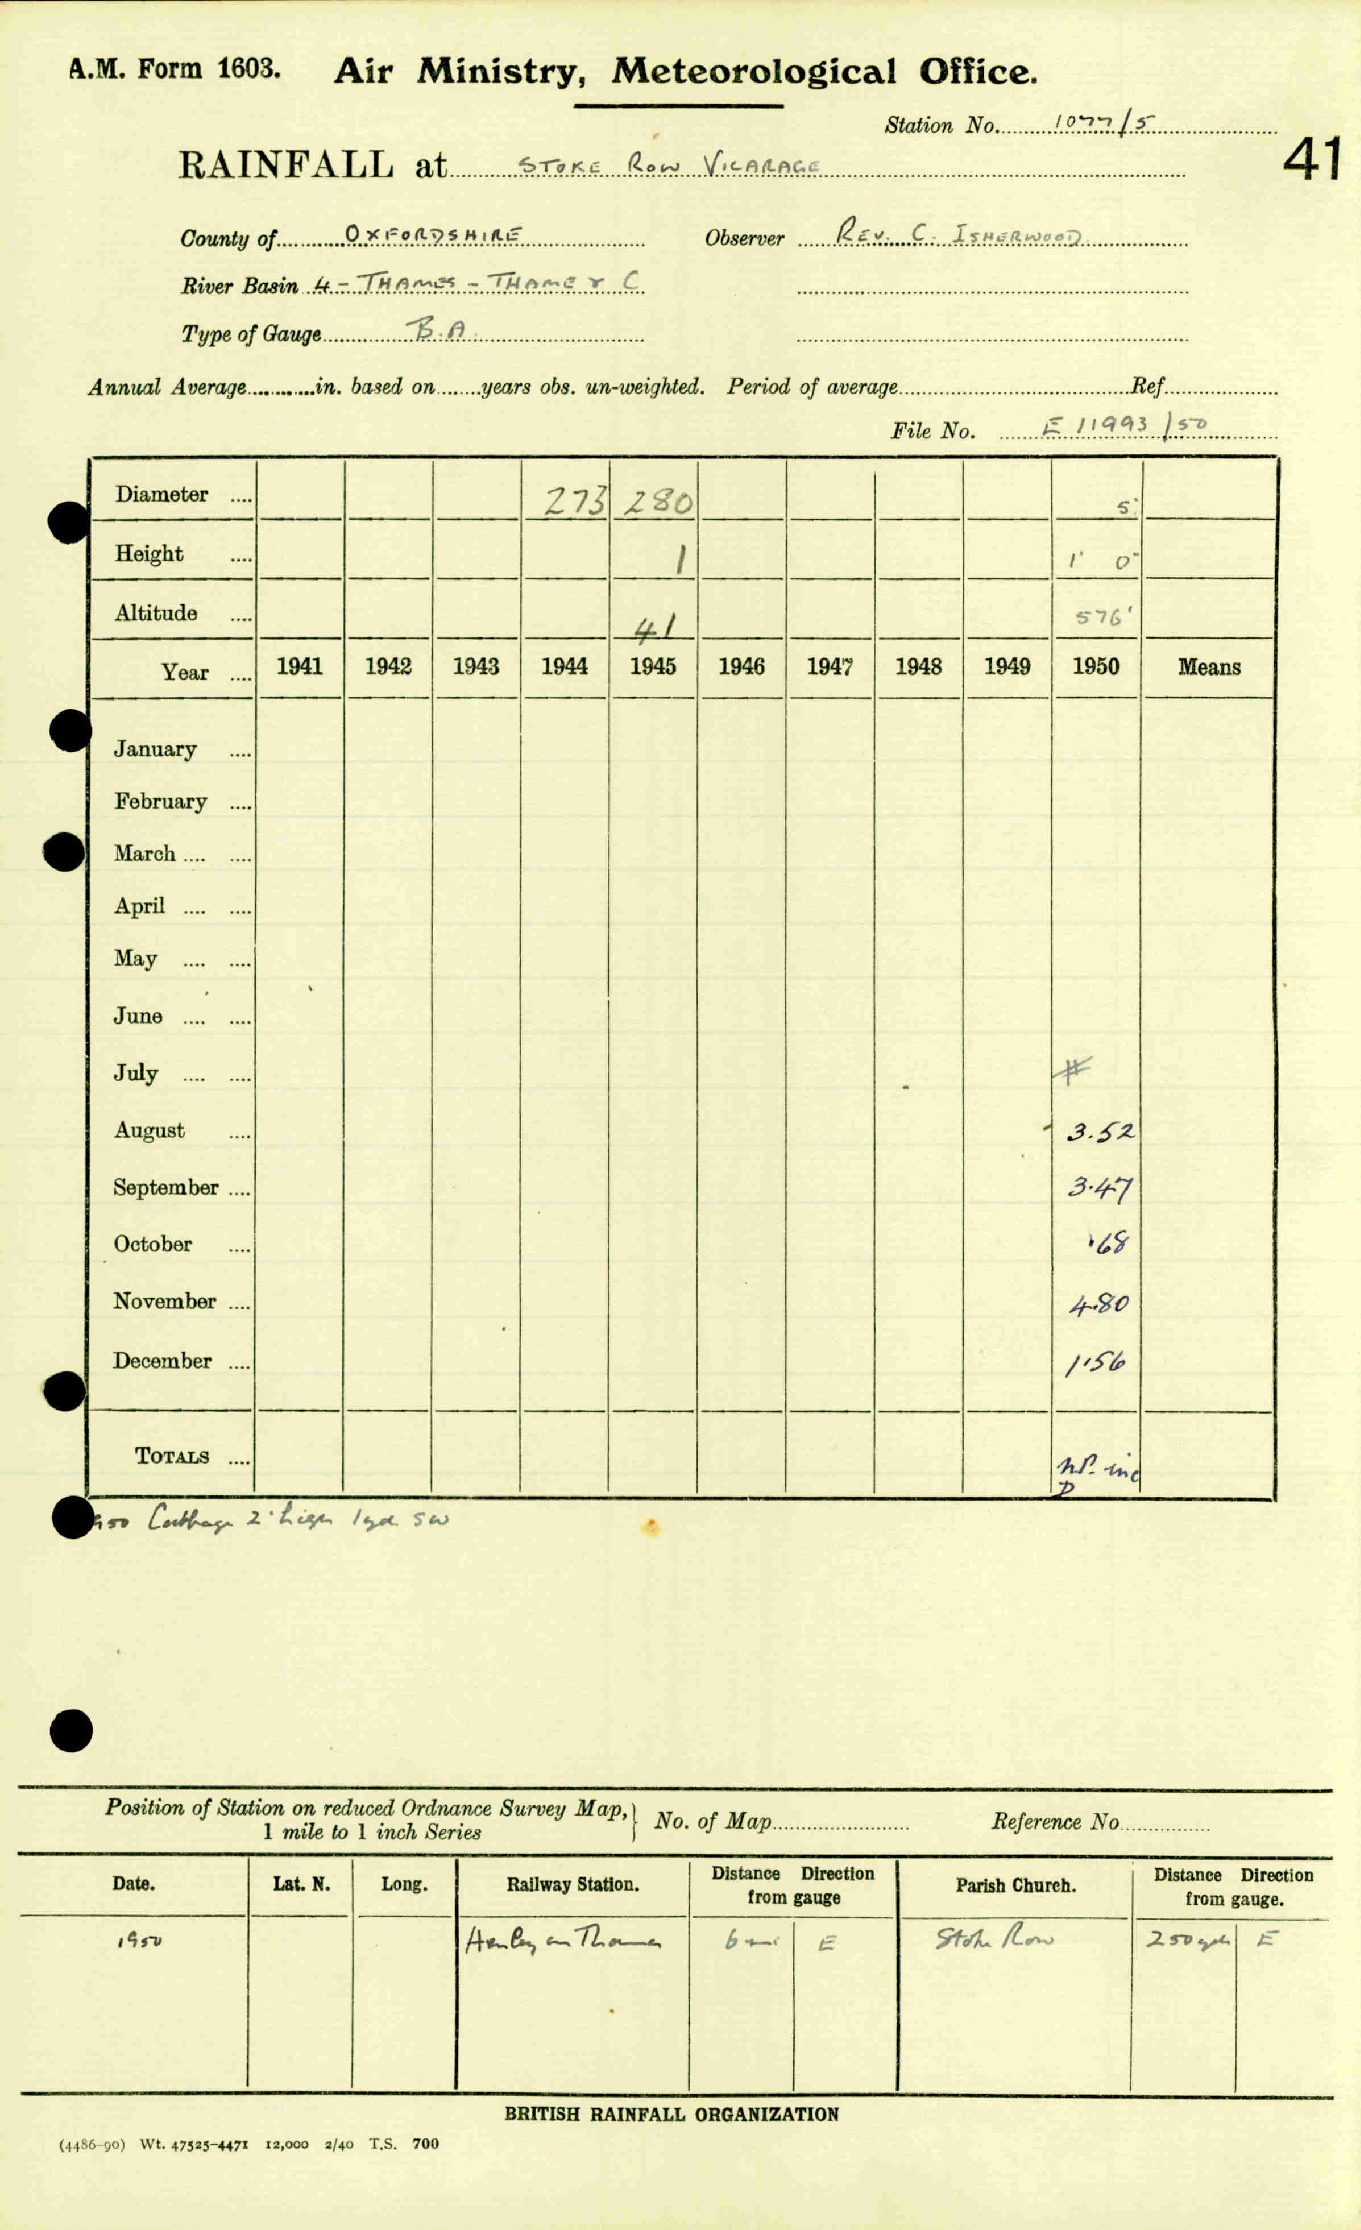 A.M. Form 1603. Air Ministry, Meteorological Office.
Station No. 1077/5
41
RAINFALL at STOKE ROW VICARAGE
County of OXFORDSHIRE Observer REV. C. ISHERWOOD
River Basin 4 - THAMES - THAME & C
Type of Gauge B.A.
Annual Average in. based on years obs. un-weighted. Period of average Ref
File No. E 11993/50
Diameter .... 273 280 5"
Height .... 1 1' 0"
Altitude .... 41 576'
Year .... 1941 1942 1943 1944 1945 1946 1947 1948 1949 1950 Means
January ....
February ....
March .... ....
April .... ....
May .... ....
June .... ....
July .... .... #
August .... 3.52
September .... 3.47
October .... .68
November .... 4.80
December .... 1.56
TOTALS .... inc
2' high 1 yd SW
Position of Station on reduced Ordnance Survey Map, } No. of Map Reference No
1 mile to 1 inch Series
Date. Lat. N. Long. Railway Station. Distance Direction from gauge Parish Church. Distance Direction from gauge.
1950 Henley on Thames 6 mi E Stoke Row 250 yds E
BRITISH RAINFALL ORGANIZATION
(4486-90) Wt. 47525-4471 12,000 2/40 T.S. 700